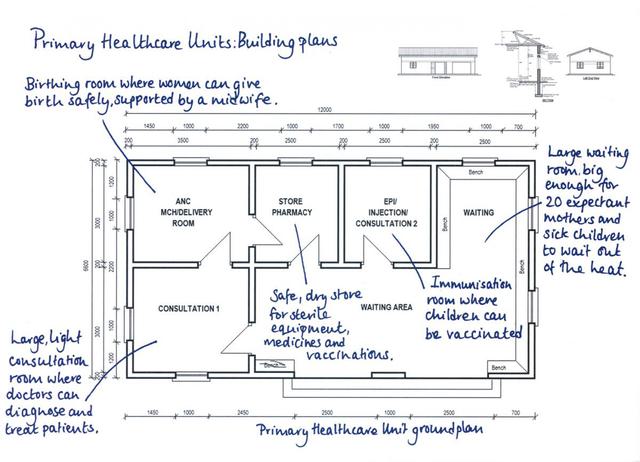 Primary Healthcare Units: Building plans
Birthing room where women can give
birth safely, supported by a midwife.
12000
1450 1000 2200 1000 1100 1000 1950 700
200 3500 200 2500 200 2500 200 2500
ANC
MCH/DELIVERY
ROOM
STORE
PHARMACY
EPI/
INJECTION/
CONSULTATION 2
WAITING
Bench
Bench
Bench
Bench
Bench
Large waiting
room, big
enough for
20 expectant
mothers and
sick children
to wait out
of the heat.
CONSULTATION 1
WAITING AREA
Safe, dry store
for sterile
equipment,
medicines and
vaccinations.
Immunisation
room where
children can
be vaccinated
Large, light
consultation
room where
doctors can
diagnose and
treat patients.
1450 1000 2450 2500 1000 2500 700
Primary Healthcare Unit groundplan